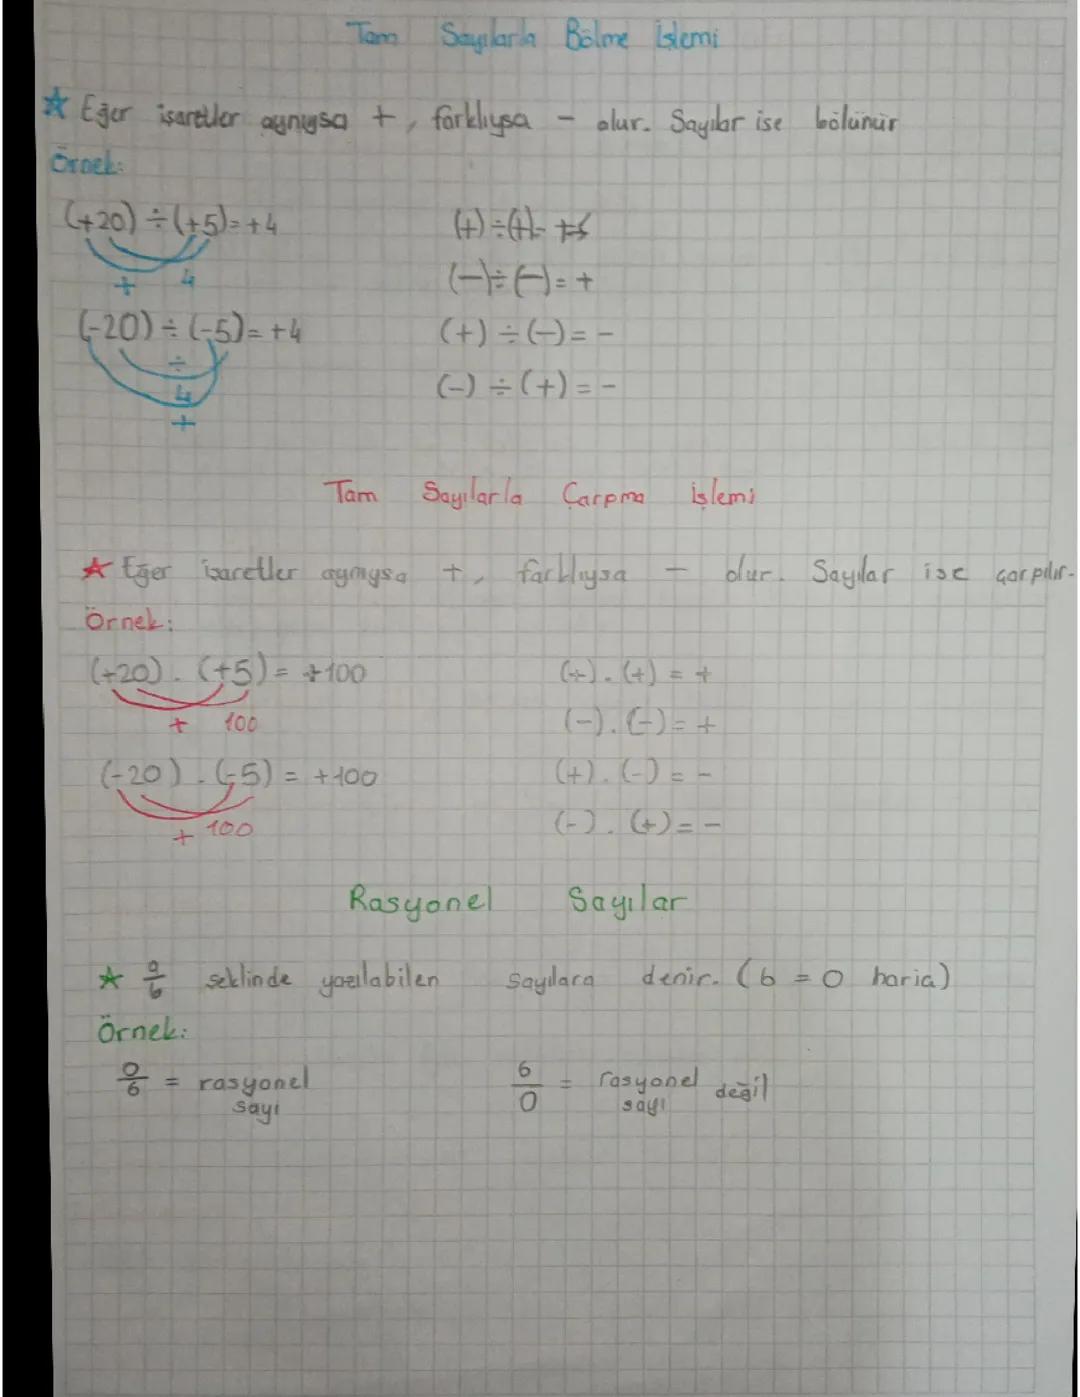 Tam Sayılarla Bölme İşlemi
☆ Eğer işaretler aynıysa +, farklıysa - olur. Sayılar ise bölünür
Örnek:
(+20) ÷ (+5) = +4 (+) ÷ (+) = +
+ 4 (-) ÷ (-) = +
(-20) ÷ (-5) = +4 (+) ÷ (-) = -
÷
4 (-) ÷ (+) = -
+
Tam Sayılarla Çarpma işlemi
☆ Eğer işaretler aynıysa +, farklıysa - olur. Sayılar ise çarpılır.
Örnek:
(+20) . (+5) = +100 (+) . (+) = +
+ 100 (-) . (-) = +
(-20) . (-5) = +100 (+) . (-) = -
+ 100 (-) . (+) = -
Rasyonel Sayılar
☆ a/b seklinde yazılabilen sayılara denir. (b = 0 haric)
Örnek:
0/6 = rasyonel sayı 6/0 = rasyonel sayı değil